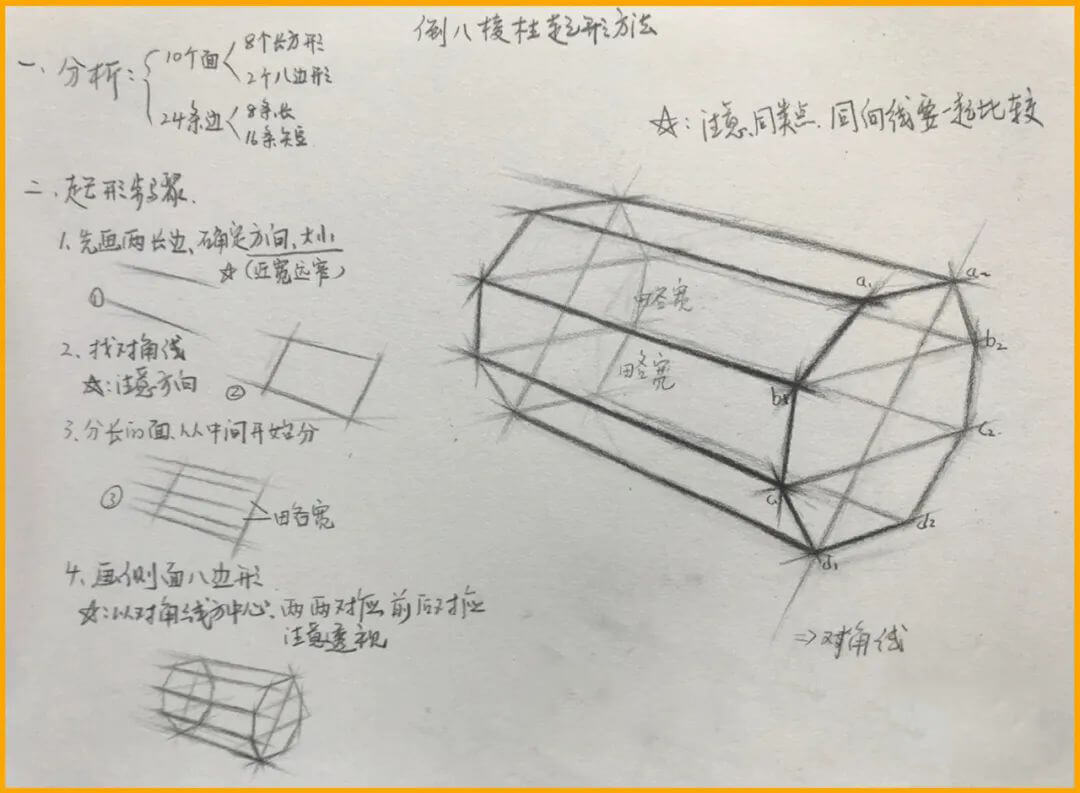 倒八棱柱起形方法
一、分析:
10个面
8个长方形
2个八边形
24条边
8条长
16条短
☆:注意、同类点、同向线要一起比较
二、起形步骤.
1.先画两长边、确定方向、大小
☆(近宽远窄)
①
2.找对角线
☆:注意方向
②
3.分长的面、从中间开始分
③
略宽
4.画侧面八边形
☆:以对角线为中心、两两对应 前后对应
注意透视
略宽
略宽
a₁
a₂
b₁
b₂
c₁
c₂
d₁
d₂
⇒对角线